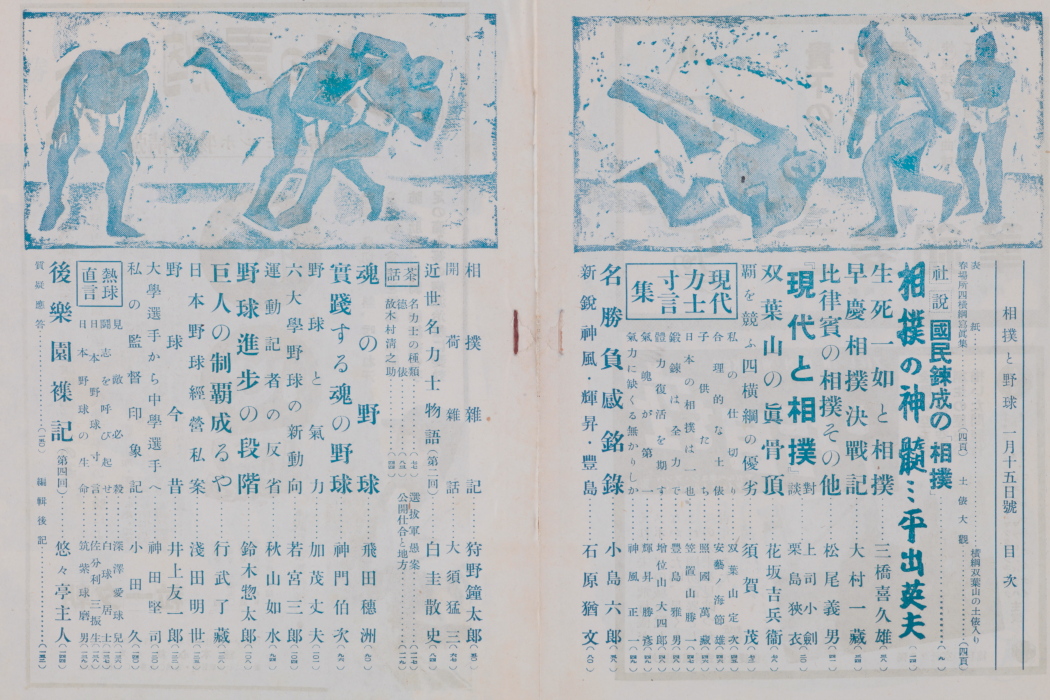 相撲と野球 一月十五日號 目次
表紙
春場所四橫綱寫眞集(四頁) 土俵大觀
社說 國民鍊成の「相撲」
相撲の神髓…平出英夫
生死一如と相撲 三橋喜久雄
早慶相撲決戰記 大村一藏
比律賓の相撲その他 松尾義男
「現代と相撲」對談 上司小劍 栗島狹衣
双葉山の眞骨頂 花坂吉兵衞
覇を競ふ四橫綱の優劣 須賀茂
現代力士寸言集
私の仕切り 双葉山定次
合理的な土俵 安藝ノ海節雄
子供たち 照國萬藏
日本の相撲は一 笠置山勝一
鍛鍊は全力で 豐島雅男
體力復活を期す 增位山大四郎
氣魄が第一 輝昇勝彥
氣力に缺くる無かりしか 神風正一
名勝負感銘錄 小島六郎
新銳神風・輝昇・豐島 石原猶文
相撲雜記 狩野鐘太郎
開荷雜話 大須猛三
近世名力士物語(第二回) 白圭散史
茶話
名力士の種類
德俵
故木村淸之助
選拔軍愚案
公開仕合と地方
魂の野球 飛田穗洲
實踐する魂の野球 神門伯次
野球と氣力 加茂丈夫
六大學野球の新動向 若宮三郎
運動記者の反省 秋山如水
野球進步の段階 鈴木惣太郎
巨人の制覇成るや 行武了藏
日本野球經營私案 淺田明世
野球今昔 井上友一郎
大學選手から中學選手へ 神田堅司
私の監督印象記 小田久
熱球直言
見敵必殺 深澤愛球兒
鬪志を呼び起せ 白球居士
日本野球の言 佐分利三坂生
日本野球の生命 筑紫球磨男
後樂園襍記(第四回) 悠々亭主人
質疑應答 編輯後記